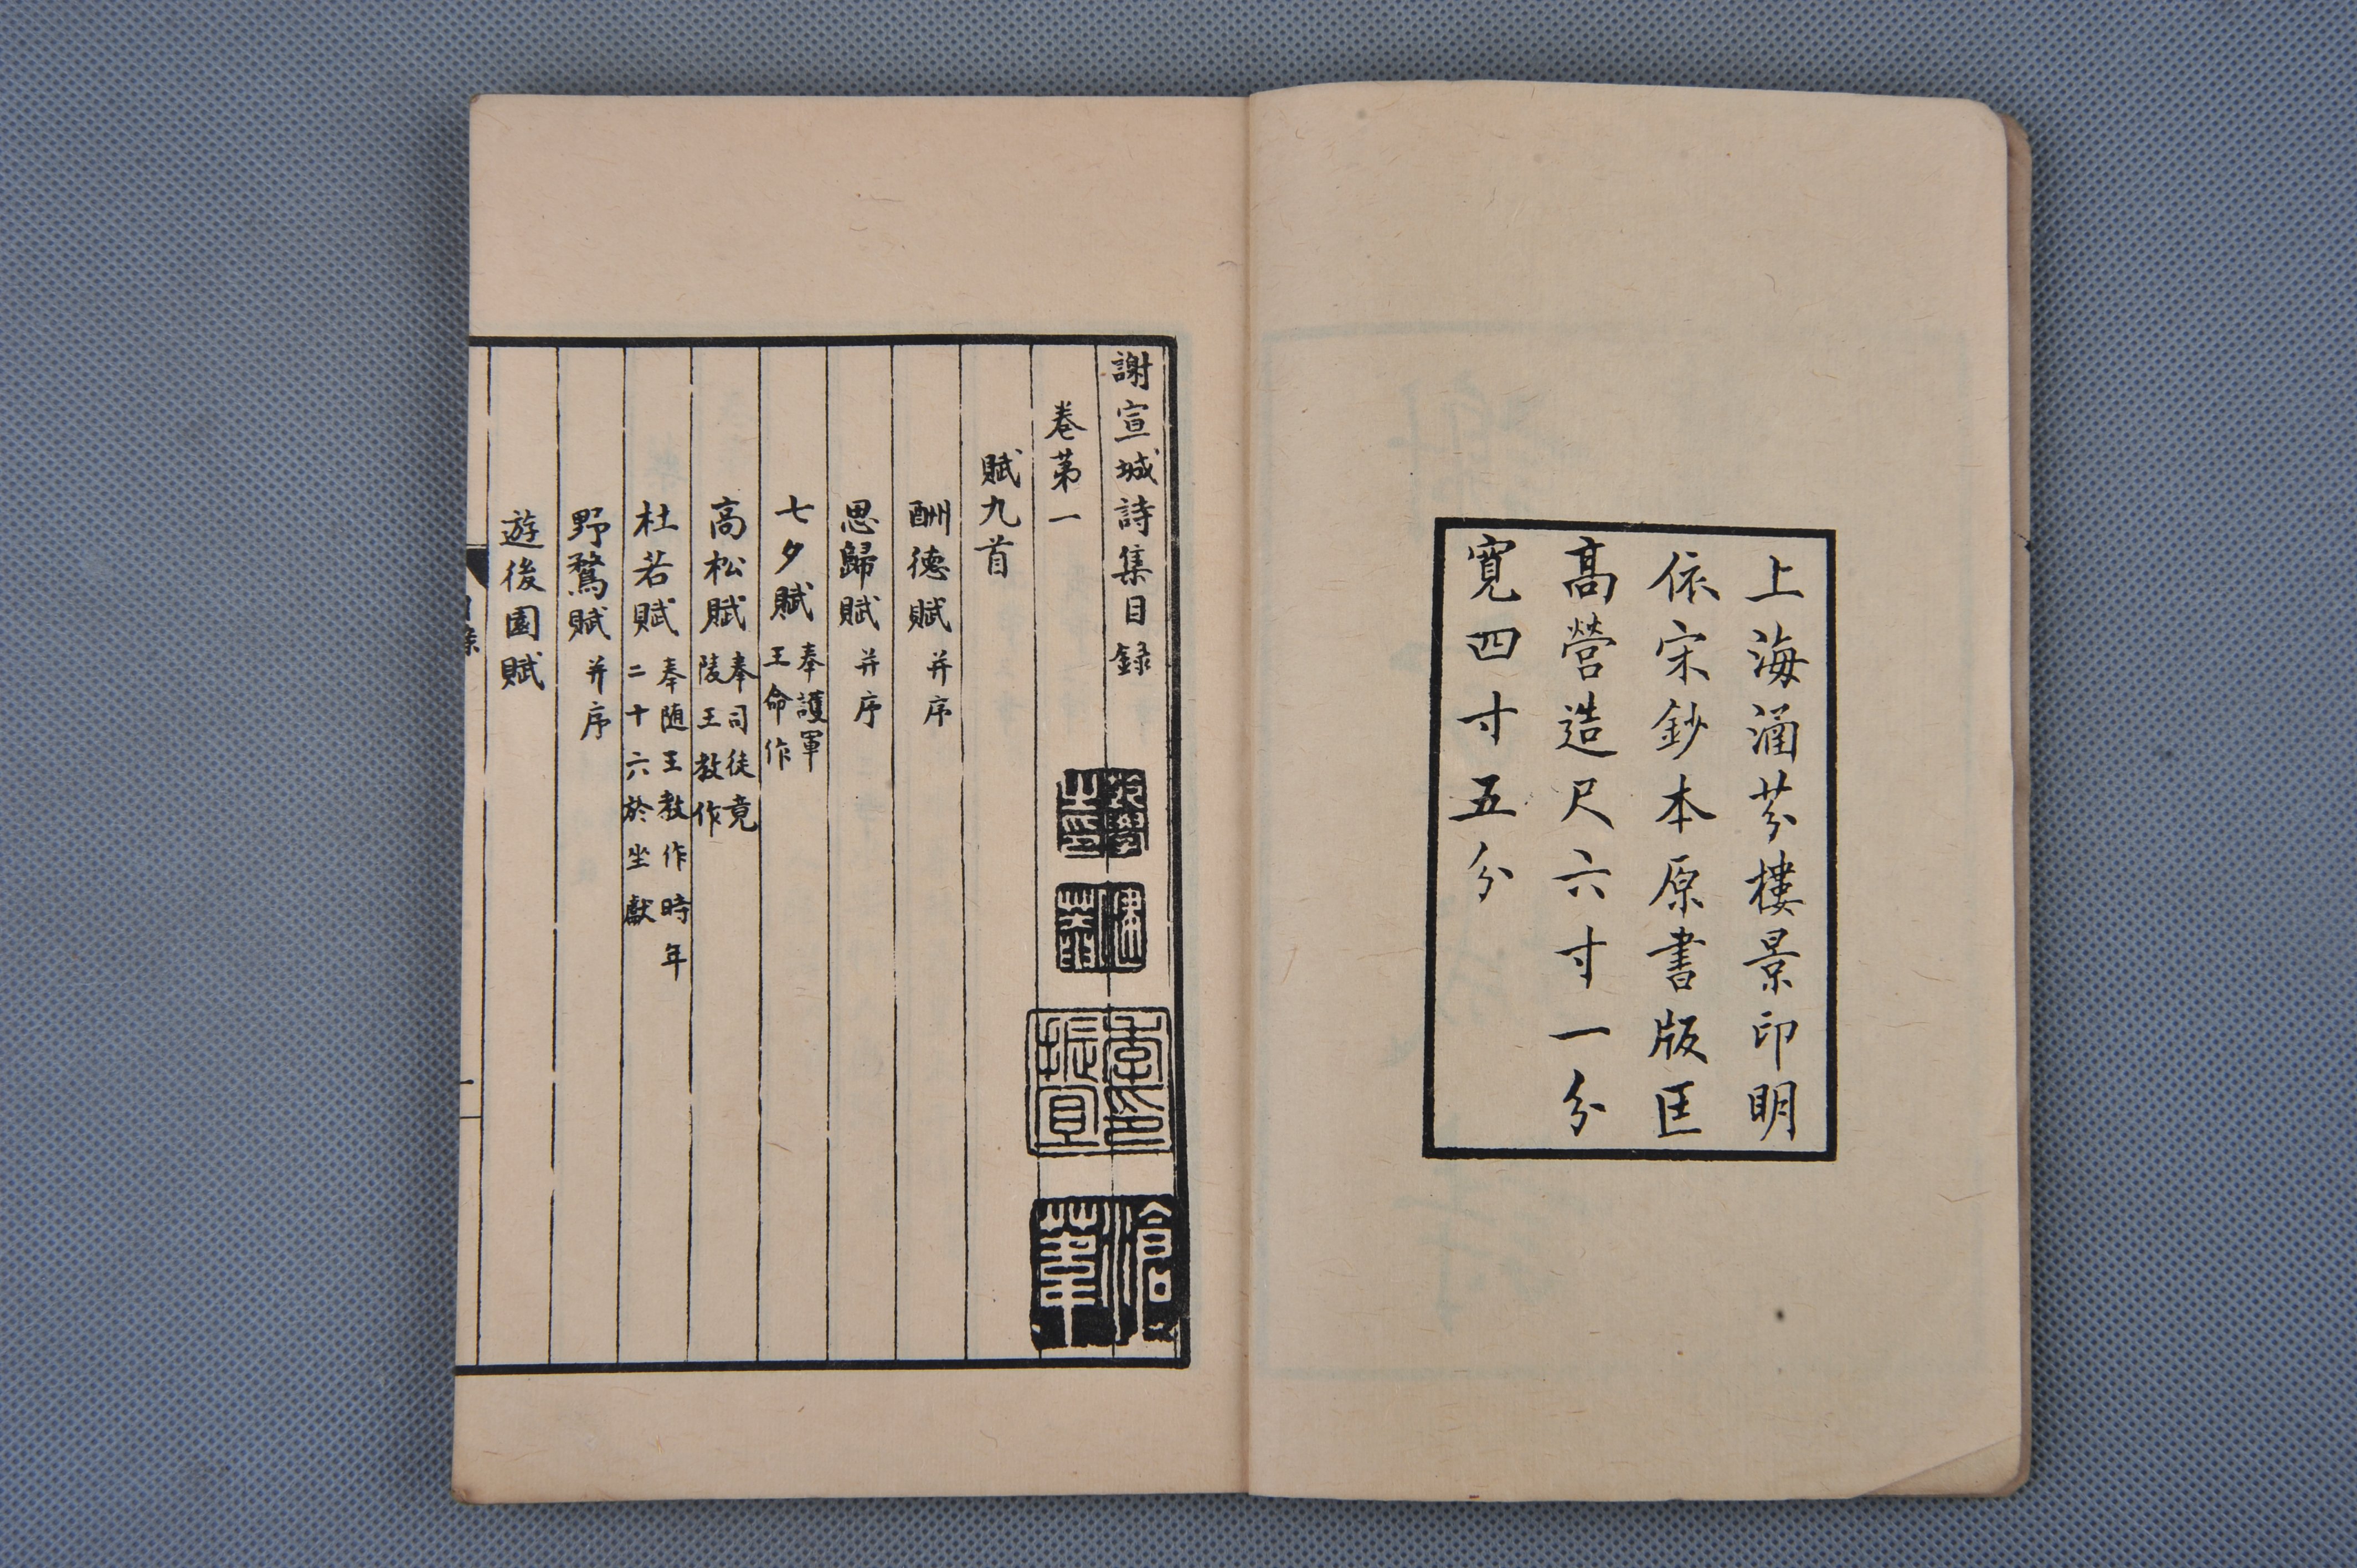 上海涵芬樓景印明
依宋鈔本原書版匡
高營造尺六寸一分
寬四寸五分
謝宣城詩集目錄
卷第一
賦九首
酬德賦 并序
思歸賦 并序
七夕賦 奉護軍
王命作
高松賦 奉司徒竟
陵王教作
杜若賦 奉随王教作時年
二十六於坐獻
野鶩賦 并序
遊後園賦
季印振宜
滄葦